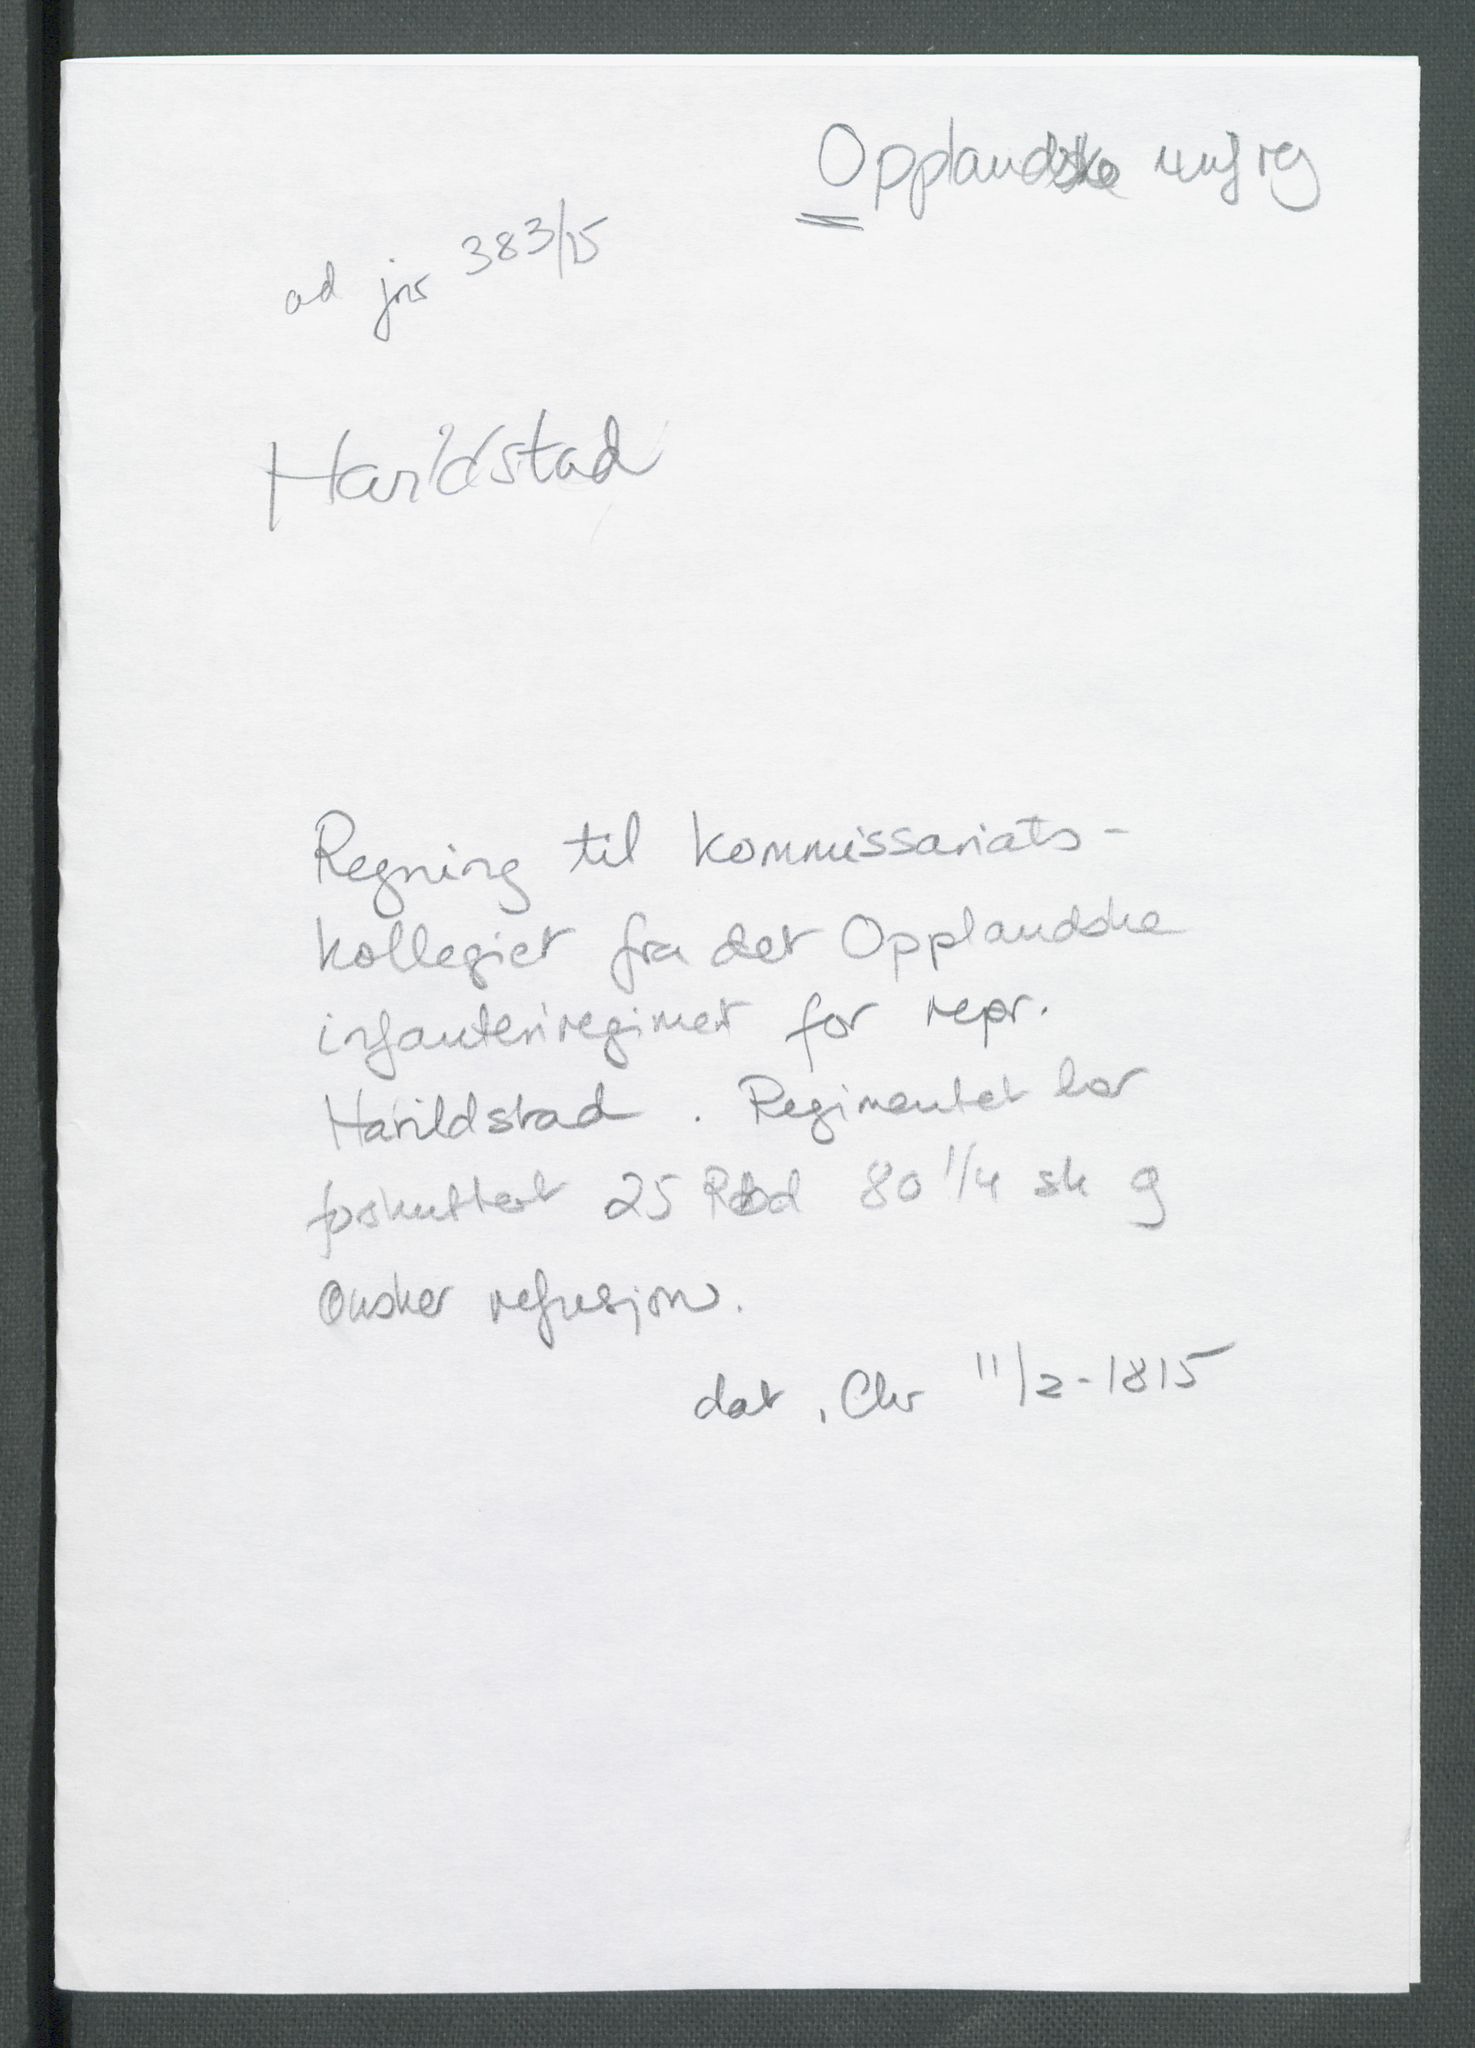 Opplandske inf reg
ad jnr 383/15
Harildstad
Regning til kommissariats-
kollegiet fra det Opplandske
infanteriregimet for repr.
Harildstad. Regimentet har
forskuttert 25 Rbd 80 1/4 sk og
ønsker refusjon.
dat. Chr 11/2-1815